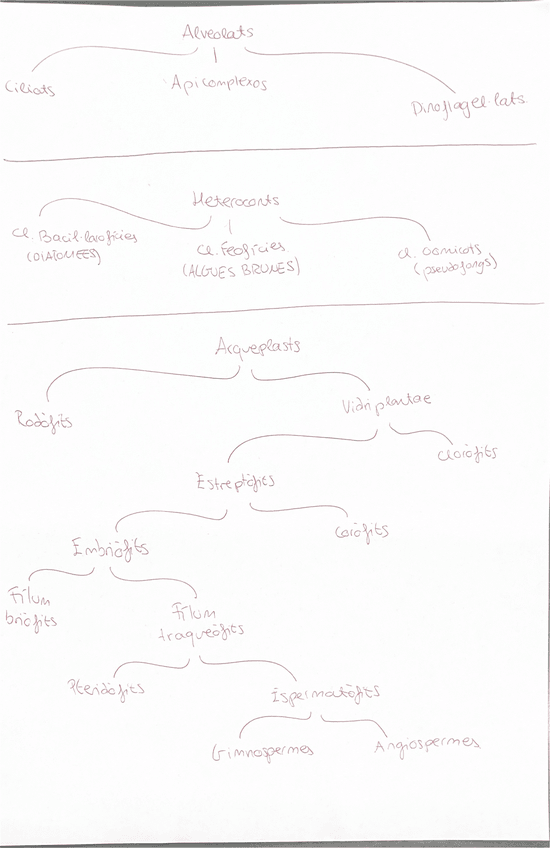 Alveolats
Ciliats
Apicomplexos
Dinoflagel·lats
Heteroconts
Cl. Bacil·lariofícies
(DIATOMEES)
Cl. Feofícies
(ALGUES BRUNES)
Cl. Oomicots
(pseudofongs)
Arqueplasts
Rodòfits
Vidriplantae
Cloròfits
Estreptòfits
Caròfits
Embriòfits
Fílum
briòfits
Fílum
traqueòfits
Pteridòfits
Espermatòfits
Gimnospermes
Angiospermes